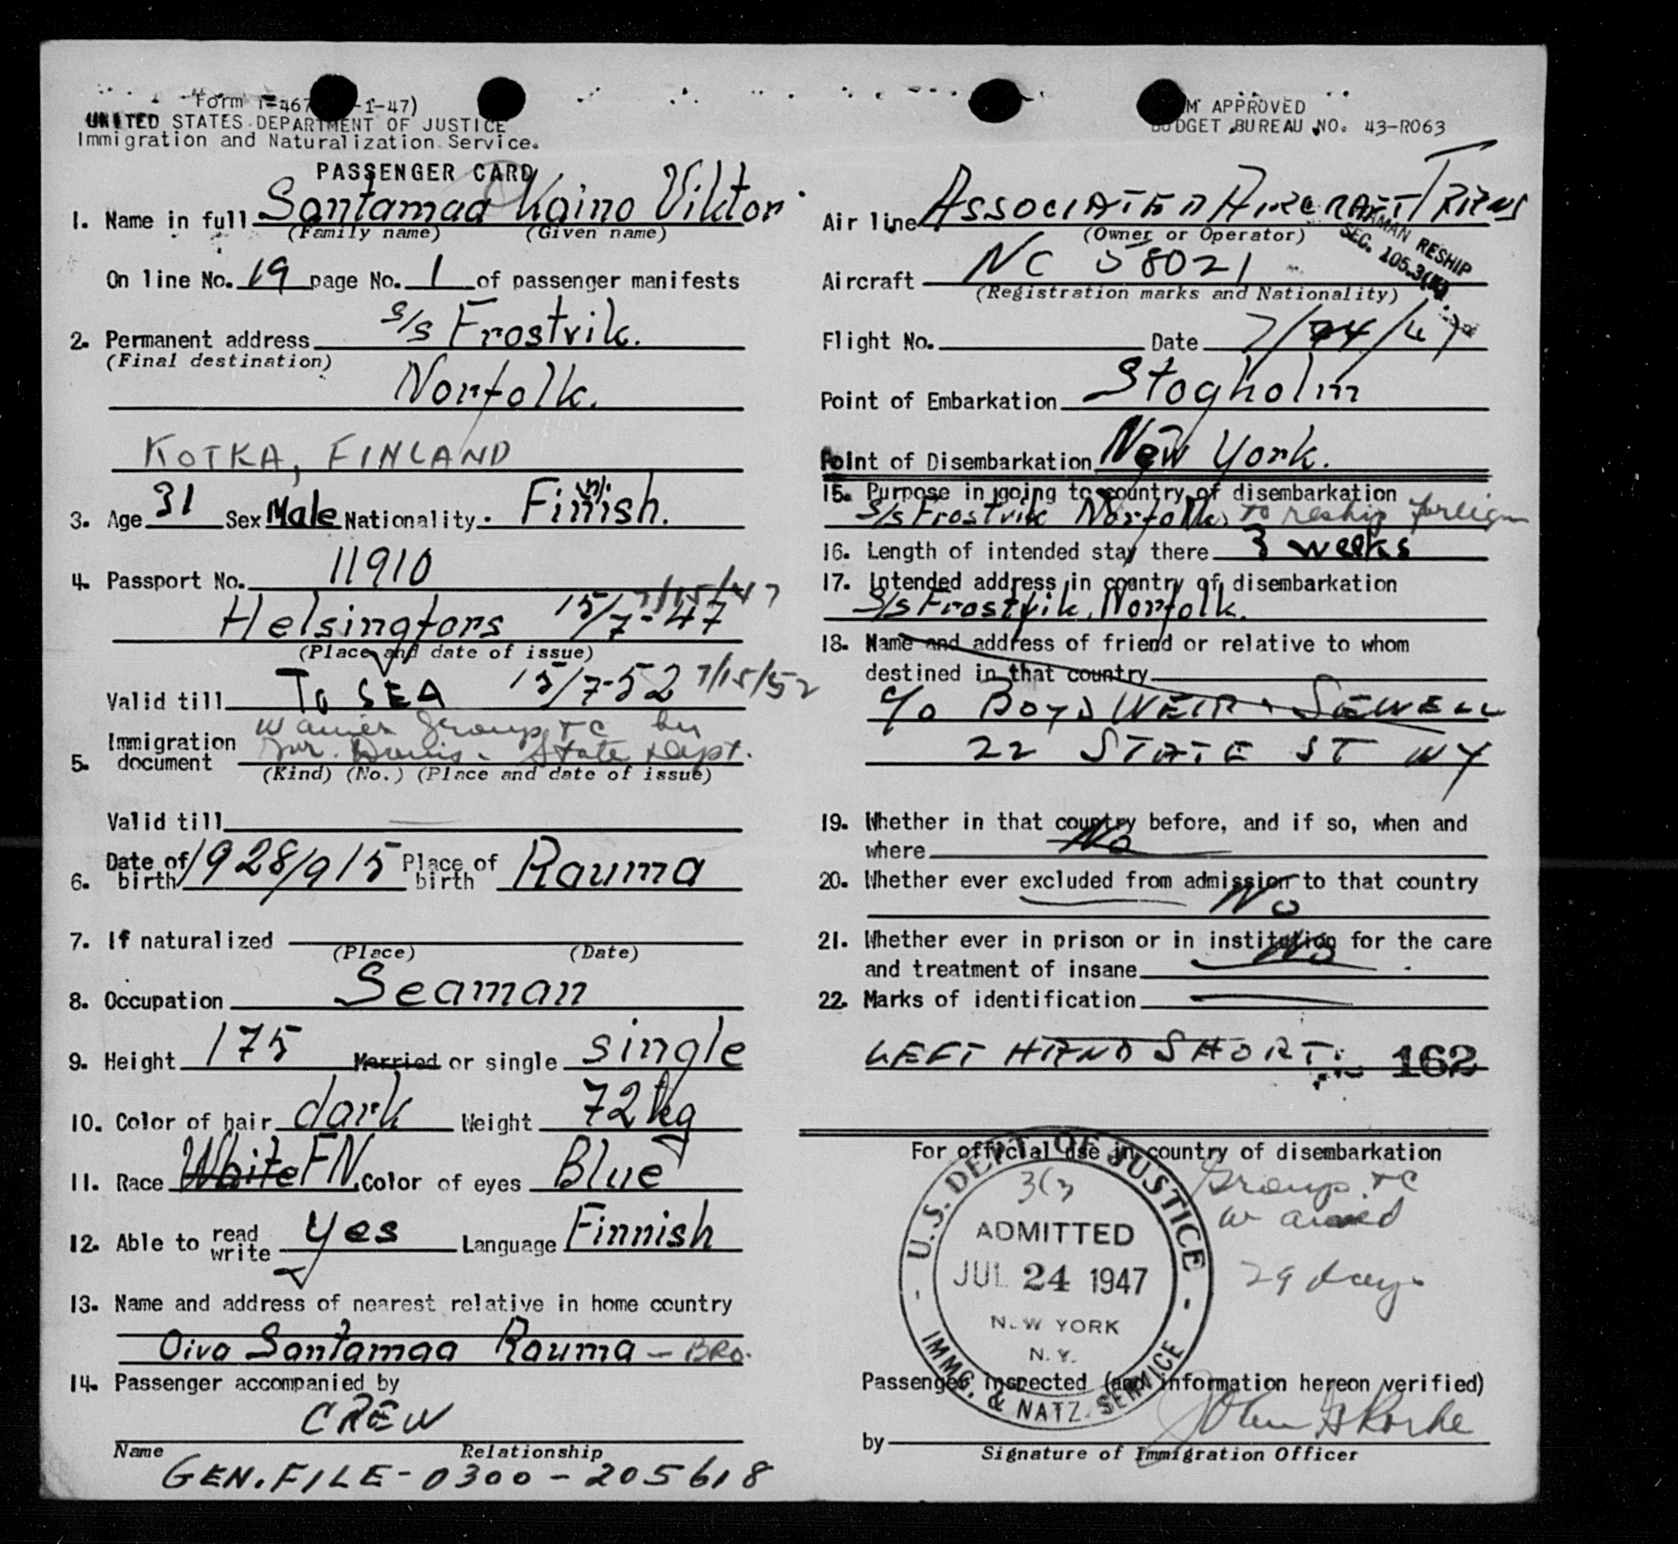 Form I-467 -1-47)
UNITED STATES DEPARTMENT OF JUSTICE
Immigration and Naturalization Service.
PASSENGER CARD
1. Name in full Santamaa Kaino Viktor
(Family name) (Given name)
On line No. 19 page No. 1 of passenger manifests
2. Permanent address s/s Frostvik.
(Final destination)
Norfolk.
KOTKA, FINLAND
3. Age 31 Sex Male Nationality. Finish.
4. Passport No. 11910
7/15/47
Helsingfors 15/7-47
(Place and date of issue)
Valid till To SEA 15/7-52 7/15/52
5. Immigration document Group + C by
Mr. State Dept.
(Kind) (No.) (Place and date of issue)
Valid till
6. Date of birth 1928/915 Place of birth Rauma
7. If naturalized
(Place) (Date)
8. Occupation Seaman
9. Height 175 Married or single single
10. Color of hair dark Weight 72 kg
11. Race White FN Color of eyes Blue
12. Able to read write yes Language Finnish
13. Name and address of nearest relative in home country
Oiva Santamaa Rauma - BRO.
14. Passenger accompanied by
CREW
Name Relationship
GEN. FILE - 0300 - 205618
M APPROVED
BUDGET BUREAU NO. 43-R063
Air line ASSOCIATED AIRCRAFT TRANS
(Owner or Operator)
RESHIP
SEC. 105.3
Aircraft NC 58021
(Registration marks and Nationality)
Flight No. Date 7/24/47
Point of Embarkation Stogholm
Point of Disembarkation New York.
15. Purpose in going to country of disembarkation
S/s Frostvik Norfolk, to reship foreign
16. Length of intended stay there 3 weeks
17. Intended address in country of disembarkation
S/s Frostvik, Norfolk.
18. Name and address of friend or relative to whom
destined in that country
c/o BOYD WEIR & SEWELL
22 STATE ST NY
19. Whether in that country before, and if so, when and
where No
20. Whether ever excluded from admission to that country
No
21. Whether ever in prison or in institution for the care
and treatment of insane No
22. Marks of identification
LEFT HAND SHORT. 162
For official use in country of disembarkation
U.S. DEPT. OF JUSTICE
3(3
ADMITTED
JUL 24 1947
NEW YORK
N.Y.
IMMG. & NATZ. SERVICE
Group + C
waived
29 days
Passenger inspected (and information hereon verified)
by John
Signature of Immigration Officer